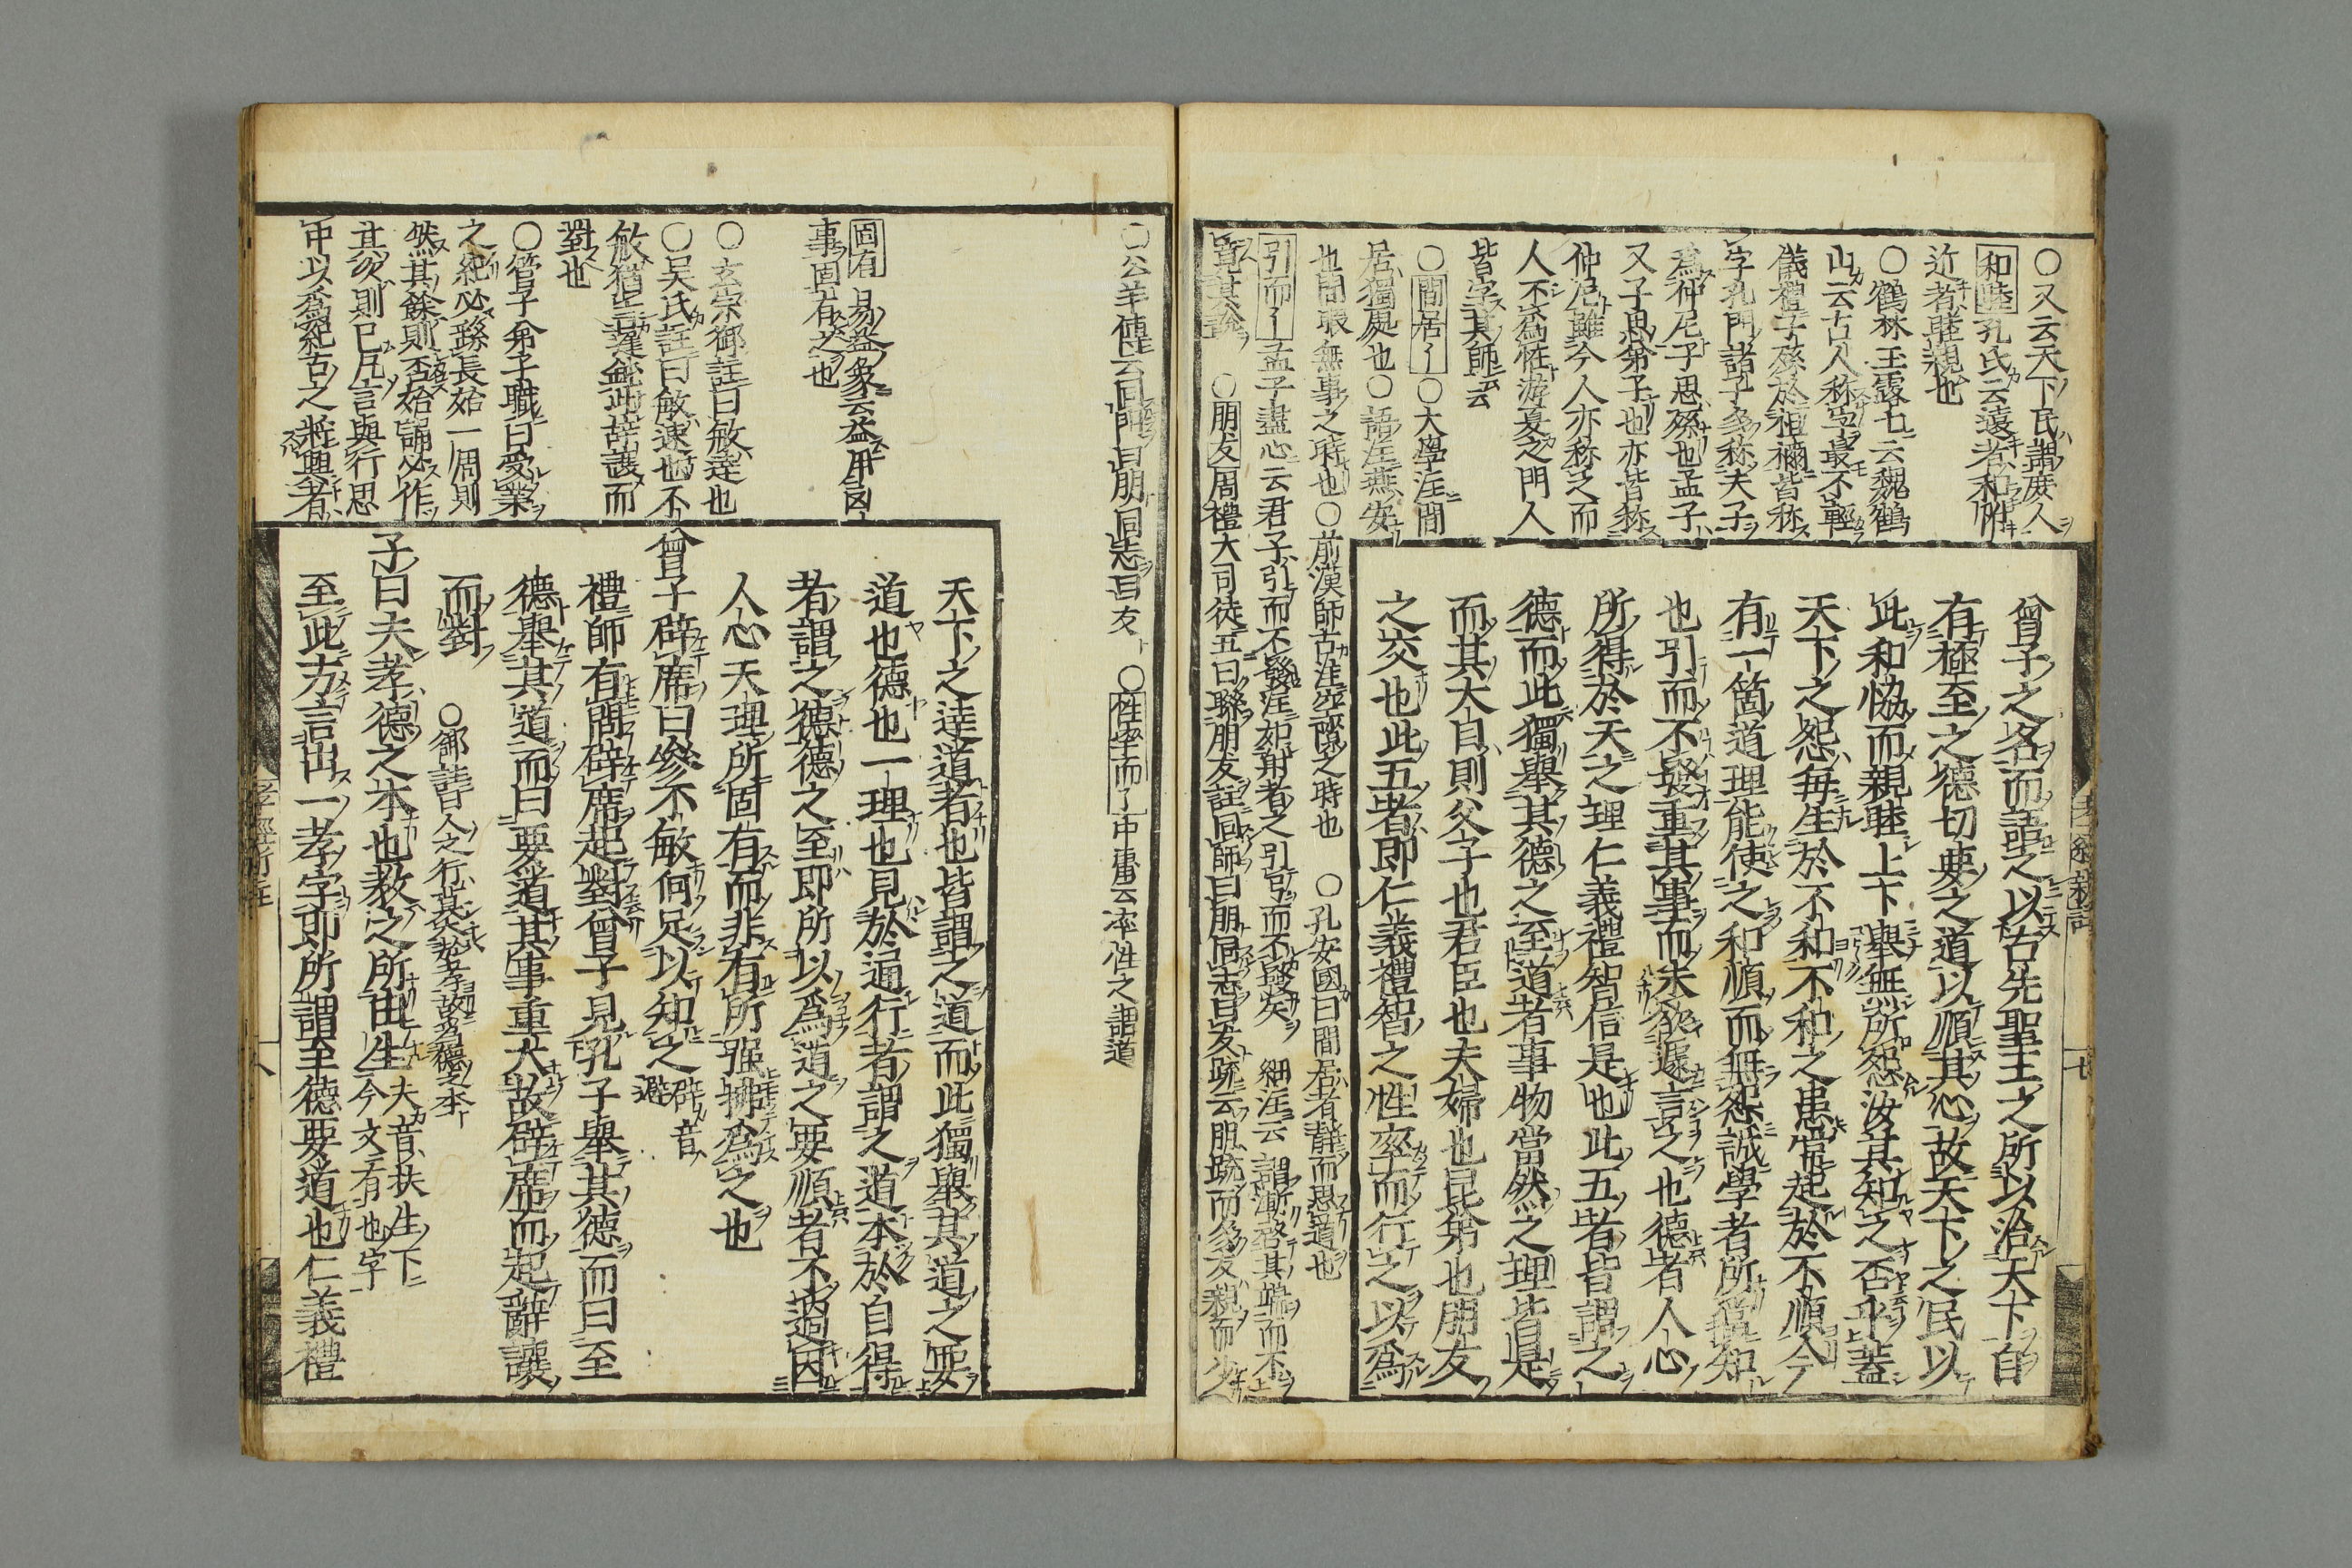 〇又云天下民謂庶人
和睦孔氏云遠者和附
近者睦親也
〇鶴林玉露七云魏鶴
山云古人称字最不輕
儀禮子孫於祖禰皆称
字孔門諸子多称夫子
為仲尼子思孫也孟子
又子思弟子也亦皆称
仲尼雖今人亦称之而
人不為怪游夏之門人
皆字其師云
〇間居〇大學注間
居獨處也〇語注燕安
也間暇無事之時也〇前漢師古注空隙之時也 〇孔安國曰間居者靜而思道也
引而孟子盡心云君子引而不發注如射者之引弓而不發矢 細注云謂漸啓其端而不
竟其說 〇朋友周禮大司徒五曰聯朋友註同師曰朋同志曰友疏云朋疏而多友親而少
曾子之名而語之以古先聖王之所以治天下自
有極至之德切要之道以順其心故天下之民以
此和恊而親睦上下舉無所怨汝其知之否乎蓋
天下之怨每生於不和不和之患常起於不順今
有一箇道理能使之和順而無怨誠學者所當知
也引而不發重其事而未欲遽言之也德者人心
所得於天之理仁義禮智信是也此五者皆謂之
德而此獨舉其德之至道者事物當然之理皆是
而其大目則父子也君臣也夫婦也昆弟也朋友
之交也此五者即仁義禮智之性率而行之以為
孝經新註
七
〇公羊傳云同門曰朋同志曰友 〇性率而中庸云率性之謂道
固有 易益象云益用凶
事固有之也
〇玄宗御註曰敏達也
〇吴氏註曰敏速也不
敏猶言遲鈍此辞讓而
對也
〇管子弟子職曰受業
之紀必由長始一周則
然其餘則否始誦必作
其次則已凡言與行思
中以為紀古之將興者
天下之達道者也皆謂之道而此獨舉其道之要
道也德也一理也見於通行者謂之道本於自得
者謂之德德之至即所以為道之要順者不過因
人心天理所固有而非有所强拂為之也
曾子辟席曰參不敏何足以知之辟音
避
禮師有問辟席起對曾子見孔子舉其德而曰至
德舉其道而曰要道其事重大故辟席而起辭讓
而對 〇御註曰人之行莫大於孝故為德之本
子曰夫孝德之本也教之所由生夫音扶生下
今文有也字
至此方言出一孝字即所謂至德要道也仁義禮
孝經新註
八